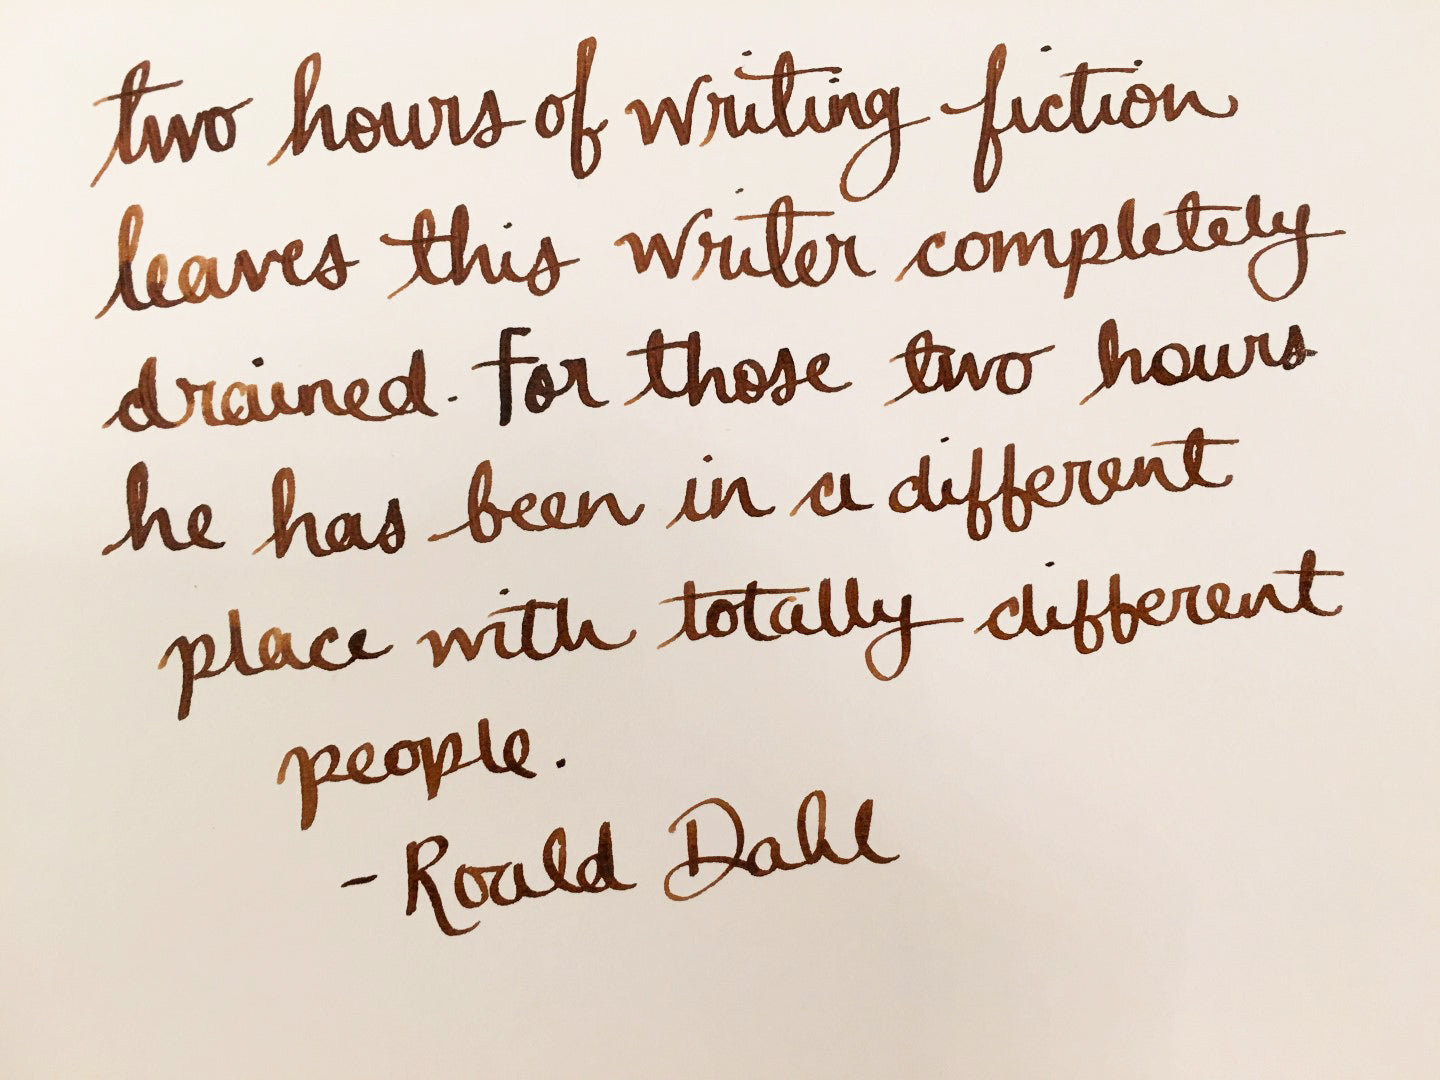 two hours of writing fiction
leaves this writer completely
drained. For those two hours
he has been in a different
place with totally different
people.
- Roald Dahl